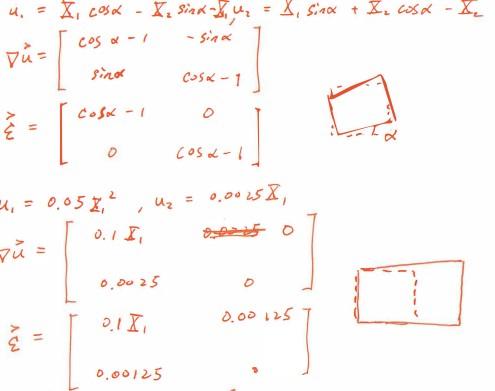 u₁ = X₁ cosα - X₂ sinα - X₁, u₂ = X₁ sinα + X₂ cosα - X₂
∇u⃗ = [ cos α - 1   -sinα
sinα   cosα - 1 ]
ε⃗ = [ cosα - 1   0
0   cosα - 1 ]
α
u₁ = 0.05 X₁² , u₂ = 0.0025 X₁
∇u⃗ = [ 0.1 X₁   0.0025 0
0.0025   0 ]
ε⃗ = [ 0.1 X₁   0.00125
0.00125   0 ]